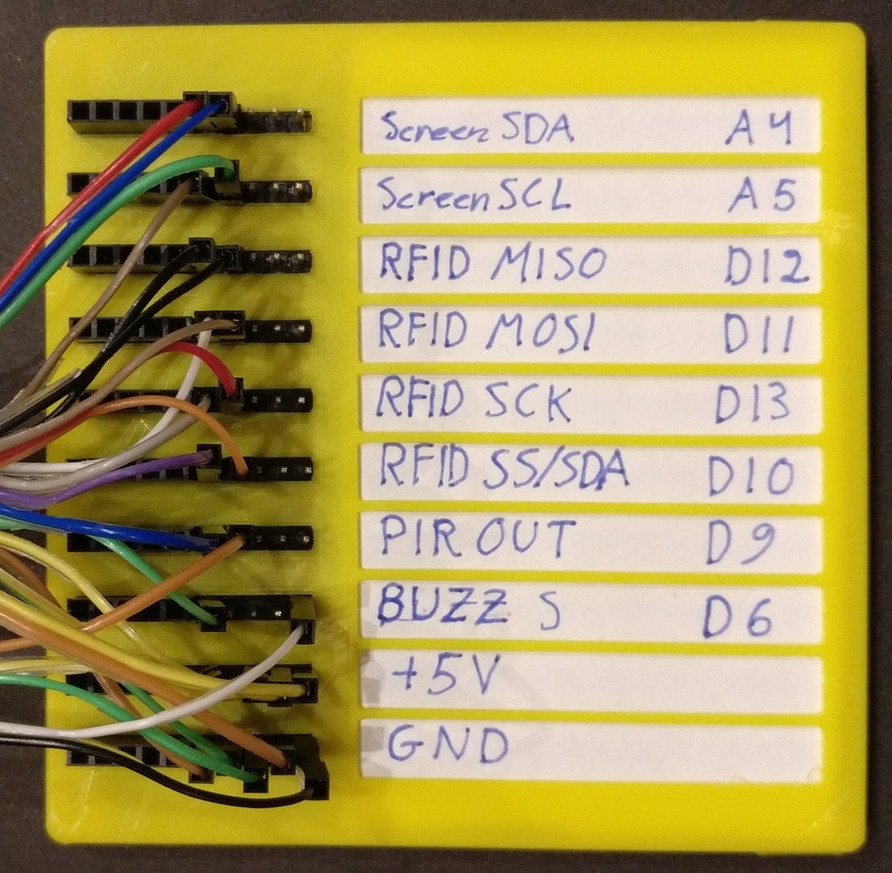 Screen SDA A4
Screen SCL A5
RFID MISO D12
RFID MOSI D11
RFID SCK D13
RFID SS/SDA D10
PIR OUT D9
BUZZ S D6
+5V
GND